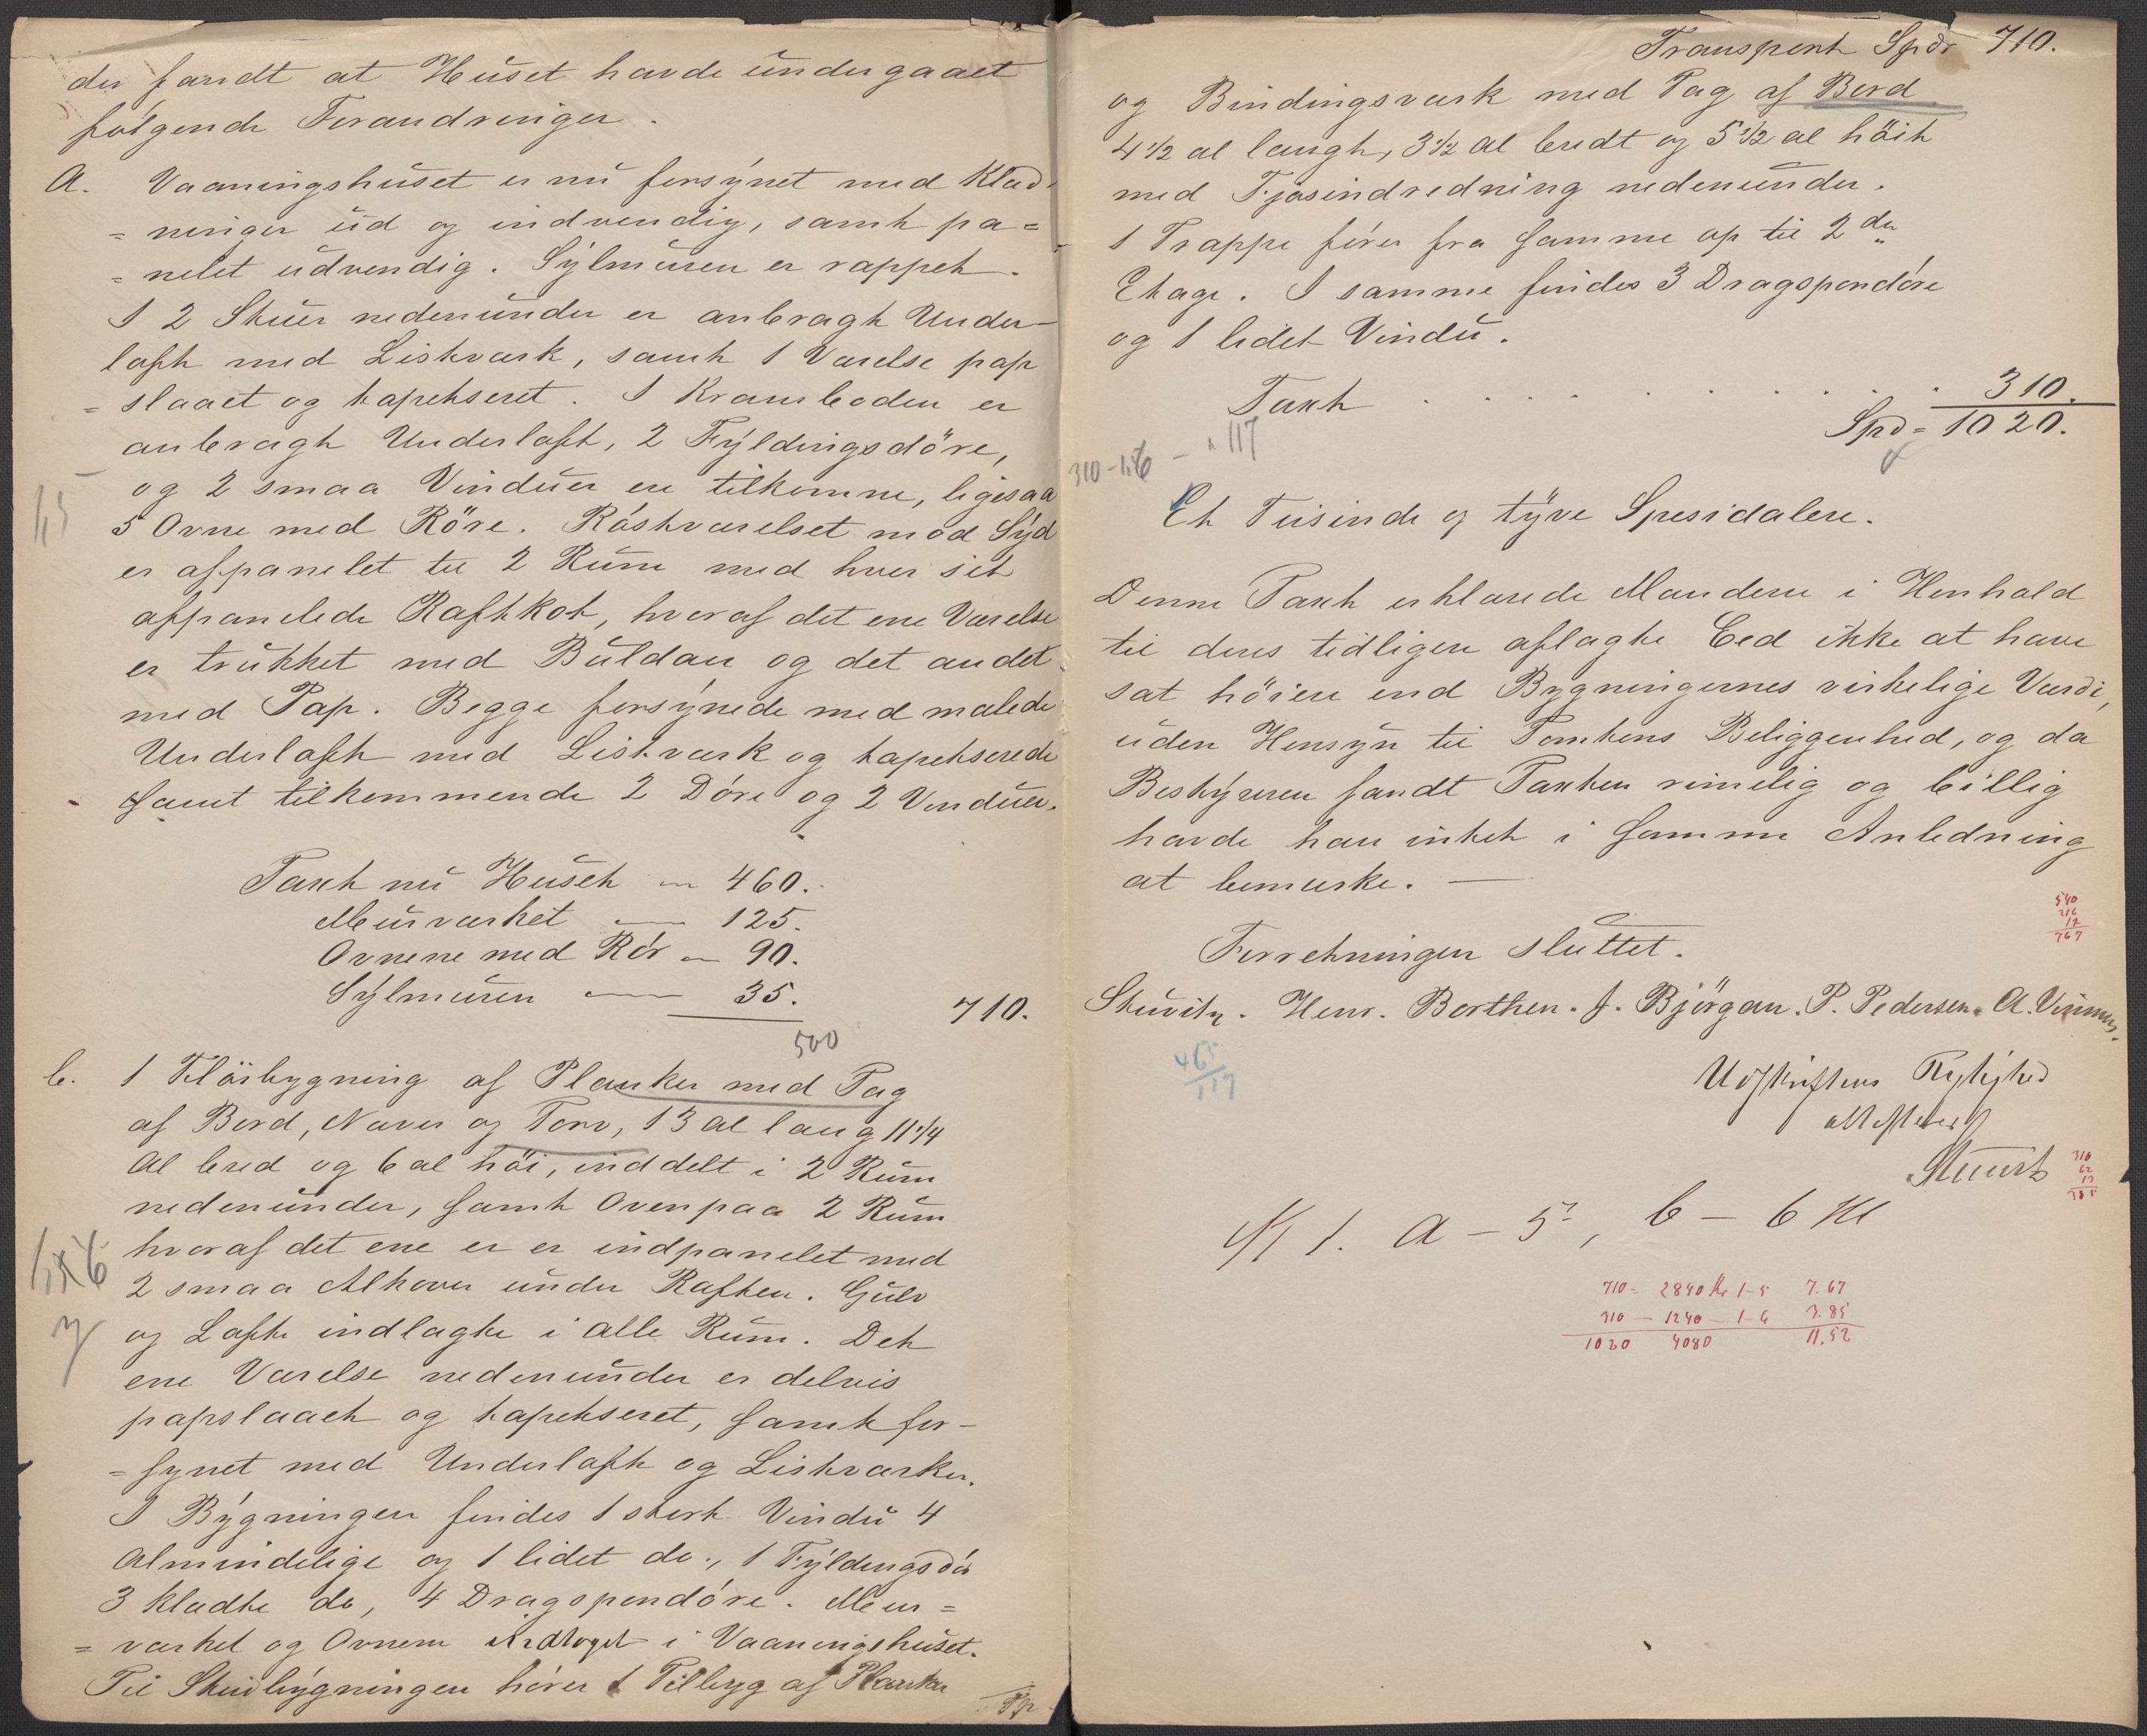 der fandt at Huset havde undergaaet
følgende Forandringer.
A. Vaaningshuset er nu forsÿnet med Klæd-
= ninger ud og indvendig, samt pa=
= nelet udvendig. Sÿlmuren er rappet.
I 2 Stuer nedenunder er anbragt Under-
loft med Listværk, samt 1 Værelse pap
= slaaet og tapetseret. I Kramboden er
anbragt Underloft, 2 Fÿldingsdöre,
og 2 smaa Vinduer ere tilkomne, ligesaa
1,5
5 Ovne med Röre. Röstværelset mod Sÿd
er afpanelet til 2 Rum med hver sit
afpanelede Raftkot, hvoraf det ene Værelse
er trukket med Buldan og det andet
med Pap. Begge forsÿnede med malede
Underloft med Listværk og tapetserede
samt tilkommende 2 Döre og 2 Vinduer.
Taxt nu Huset — 460.
Murværket — 125.
Ovnene med Rör — 90.
Sÿlmuren — 35.
710.
500
b. 1 Flöibygning af Planker med Tag
af Bord, Næver og Torv, 13 al lang 11 1/4
Al bred og 6 al höi, inddelt i 2 Rum
nedenunder, samt Ovenpaa 2 Rum
hvoraf det ene er er indpanelet med
2 smaa Alkover under Raften. Gulv
og Lofte indlagte i alle Rum. Det
ene Værelse nedenunder er delvis
papslaaet og tapetseret, samt for-
= synet med Underloft og Listværker.
I Bÿgningen findes 1 stort Vindu 4
Almindelige og 1 lidet do., 1 Fÿldingsdör
3 klædte do, 4 Dragspondöre. Mur=
= værket og Ovnene indtaget i Vaaningshuset.
Til Skuibÿgningen hörer 1 Tilbyg af Planker
Transport Spdr 710.
og Bindingsværk med Tag af Bord
4 1/2 al langt, 3 1/2 al bredt og 5 1/2 al höit
med Fjösindredning nedenunder.
1 Trappe förer fra samme op til 2den
Etage. I samme findes 3 Dragspondöre
og 1 lidet Vindu.
Taxt . . . . . . . . . 310.
Spd = 1020.
310-1,6 - " 117
Et Tusinde og tÿve Spesidalere.
Denne Taxt erklærede Mændene i Henhold
til deres tidligere aflagte Eed ikke at have
sat höiere end Bygningernes virkelige Værdi,
uden Hensyn til Tomtens Beliggenhed, og da
Bestÿreren fandt Taxten rimelig og billig
havde han intet i samme Anledning
at bemærke. —
540
216
12
767
Forretningen sluttet.
Stuvitz. Henr. Borthen. J. Björgan. P. Pedersen. A.
465
117
Udskriftens Rigtighed
attesteres
316
62
385
Kl 1. a - 5, b - 6 Kl
710 = 2840 Kl 1-5 7.67
310 — 1240 — 1-6 3.85
1020 4080 11.52